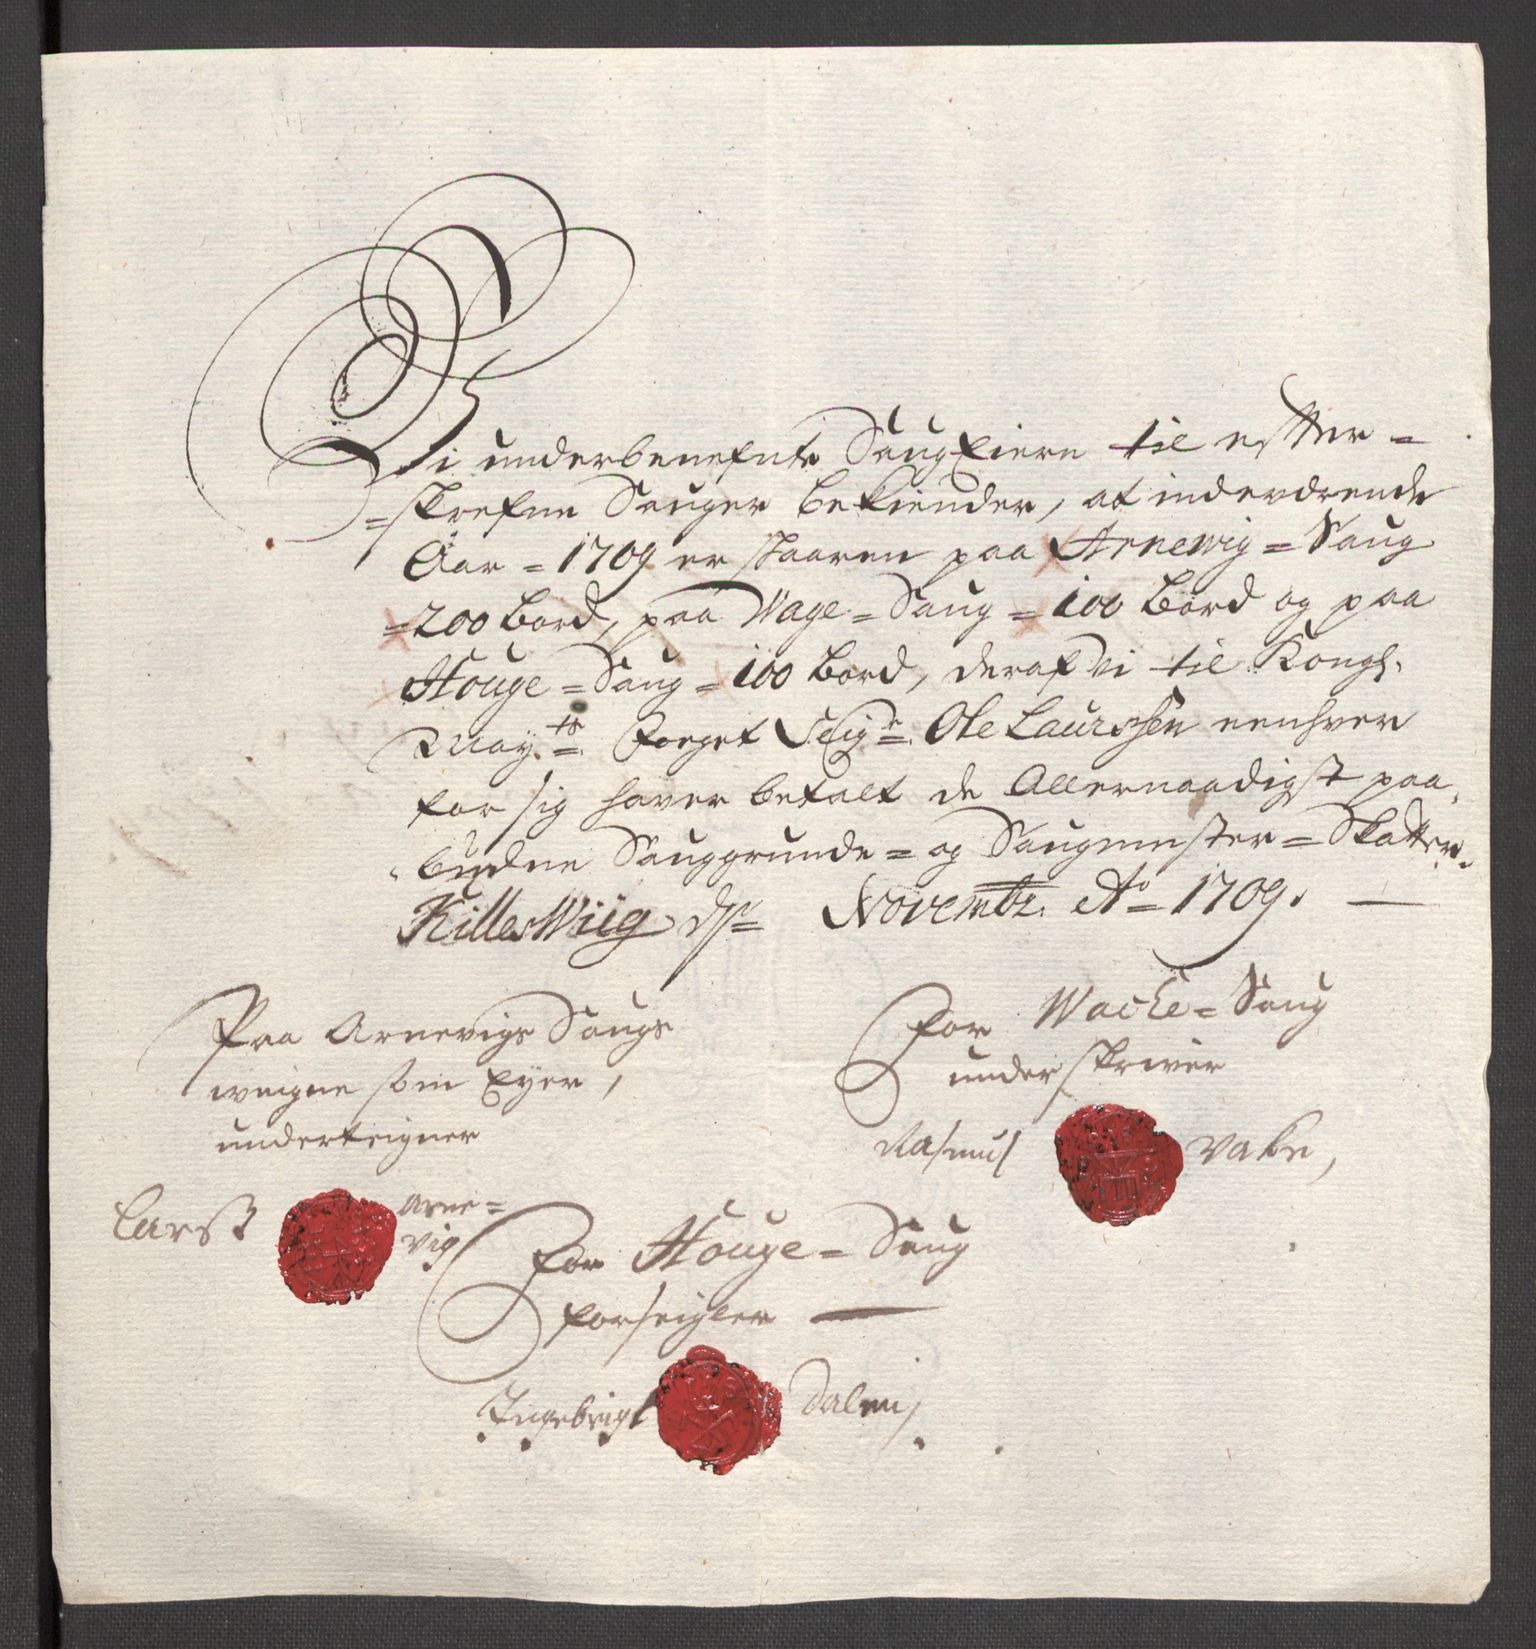 Vi underbenefnte SaugEiere til efter-
=skrefne Sauger bekiender, at indeværende
Aar = 1709 er skaaren paa Arnewig = Saug
=200 Bord, paa Wage = Saug = 100 Bord og paa
Houge = Saug = 100 Bord, deraf vi til Kongl.
May.ts Foeget Seigr. Ole Laurssen eenhver
for sig haver betalt de Allernaadigst paa,
budne Sauggrunde = og Saugmester = Skatter.
KilleWiig dn Novembr. Ao 1709.
Paa Arnevigs Saugs
weigne som Eyer,
underteigner
Larss Arne=
vig
For Wacke = Saug
underskriver
Rasmus Vake,
For Houge = Saug
forseigler
Ingebrigt Dalen,